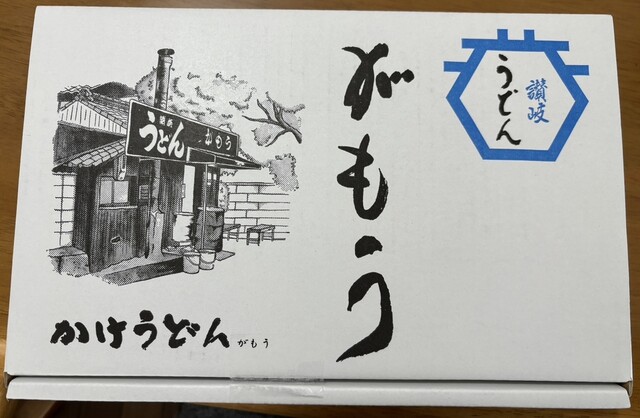 讃岐
うどん
がもう
讃岐
うどん
がもう
かけうどん がもう